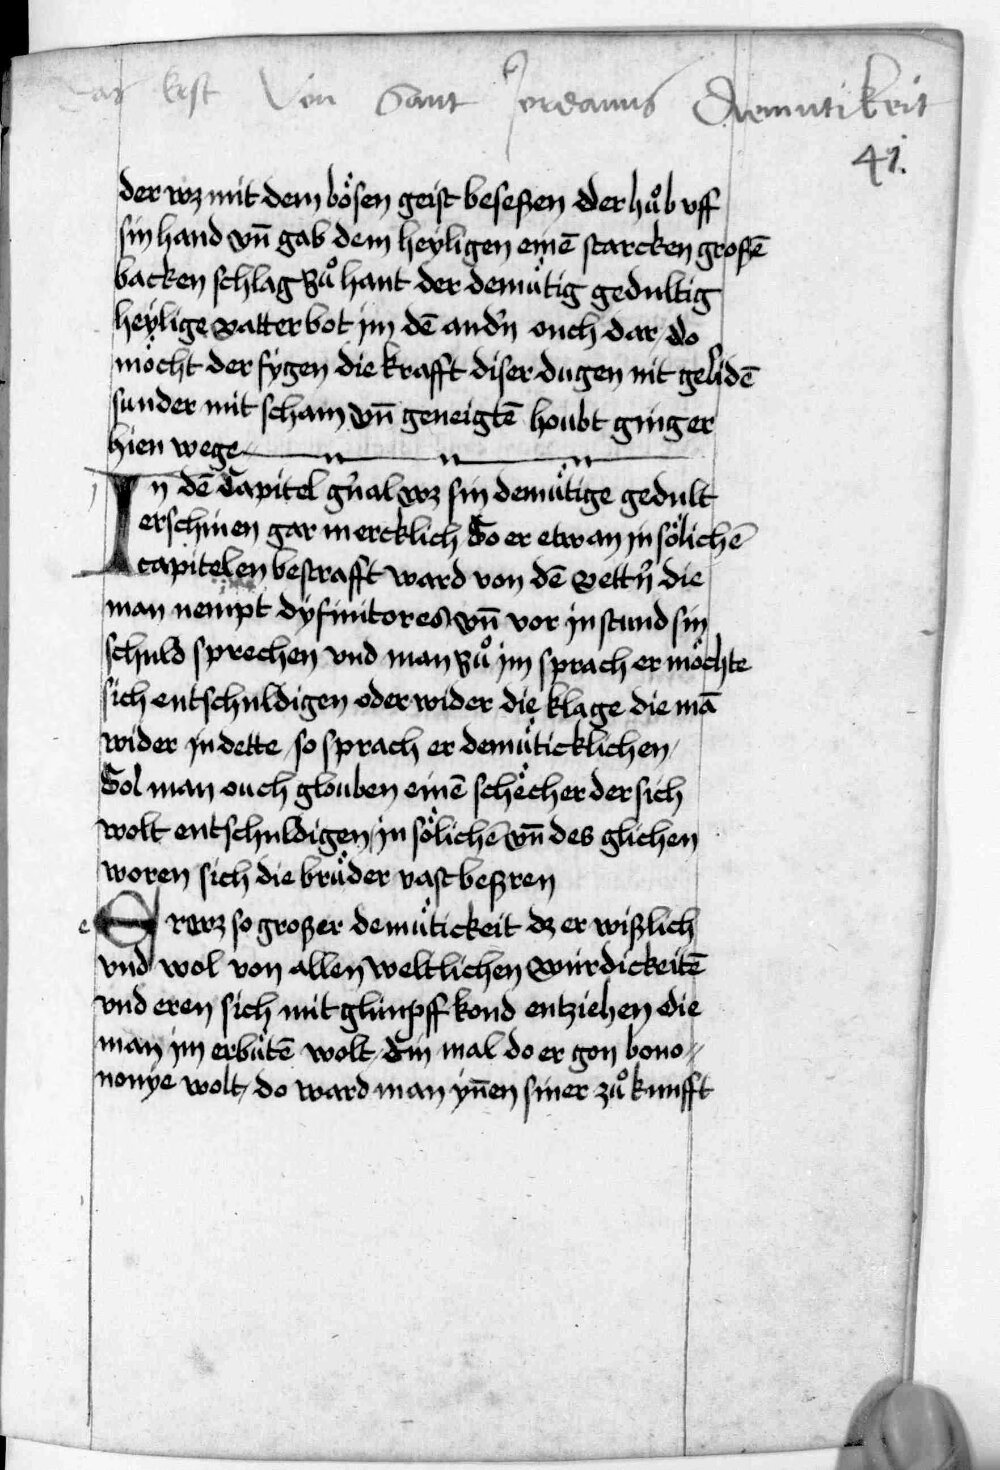 Das lest Von Sant Jordanus Diemutikeit
41.
der wz mit dem bösen geist beseßen der hůb vff
sin hand vn̄ gab dem heyligen einē starcken großē
backen schlag Zů hant der demütig gedultig
heylige vatter bot jm dē andn̄ ouch dar do
möcht der fygen die krafft diser dugen nit gelidē
sunder mit scham vn̄ geneigtē houbt ging er
hien wege
In dē Capitel gn̄al wz sin demütige gedult
erschinen gar mercklich So er etwan in sölichē
capitelen bestrafft ward von dē vettn̄ die
man nempt dyfinitores vn̄ vor in stund sin
schuld sprechen vnd man zů jm sprach er möchte
sich entschuldigen oder wider die klage die mā
wider in dette / so sprach er demüticklichen /
Sol man ouch glouben einē schecher der sich
wolt entschuldigen / in sölichē vn̄ des glichen
woren sich die brüder vast beßren
e
Er wz so großer demütickeit dz er wißlich
vnd wol von allen weltlichen würdickeitē
vnd eren sich mit glimpff kond entziehen die
man jm erbütē wolt / Ein mal do er gon bono
nonye wolt / do ward man yn̄en siner zů kunfft